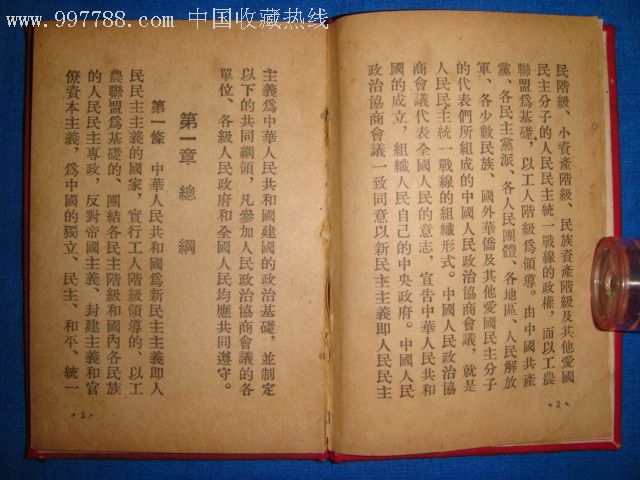 www.997788.com 中国收藏热线
民階級、小資產階級、民族資產階級及其他愛國
民主分子的人民民主統一戰線的政權，而以工農
聯盟爲基礎，以工人階級爲領導。由中國共產
黨、各民主黨派、各人民團體、各地區、人民解放
軍、各少數民族、國外華僑及其他愛國民主分子
的代表們所組成的中國人民政治協商會議，就是
人民民主統一戰線的組織形式。中國人民政治協
商會議代表全國人民的意志，宣告中華人民共和
國的成立，組織人民自己的中央政府。中國人民
政治協商會議一致同意以新民主主義即人民民主
·2·
主義爲中華人民共和國建國的政治基礎，並制定
以下的共同綱領，凡參加人民政治協商會議的各
單位、各級人民政府和全國人民均應共同遵守。
第一章 總綱
第一條 中華人民共和國爲新民主主義即人
民民主主義的國家，實行工人階級領導的、以工
農聯盟爲基礎的、團結各民主階級和國內各民族
的人民民主專政，反對帝國主義、封建主義和官
僚資本主義，爲中國的獨立、民主、和平、統一
·3·